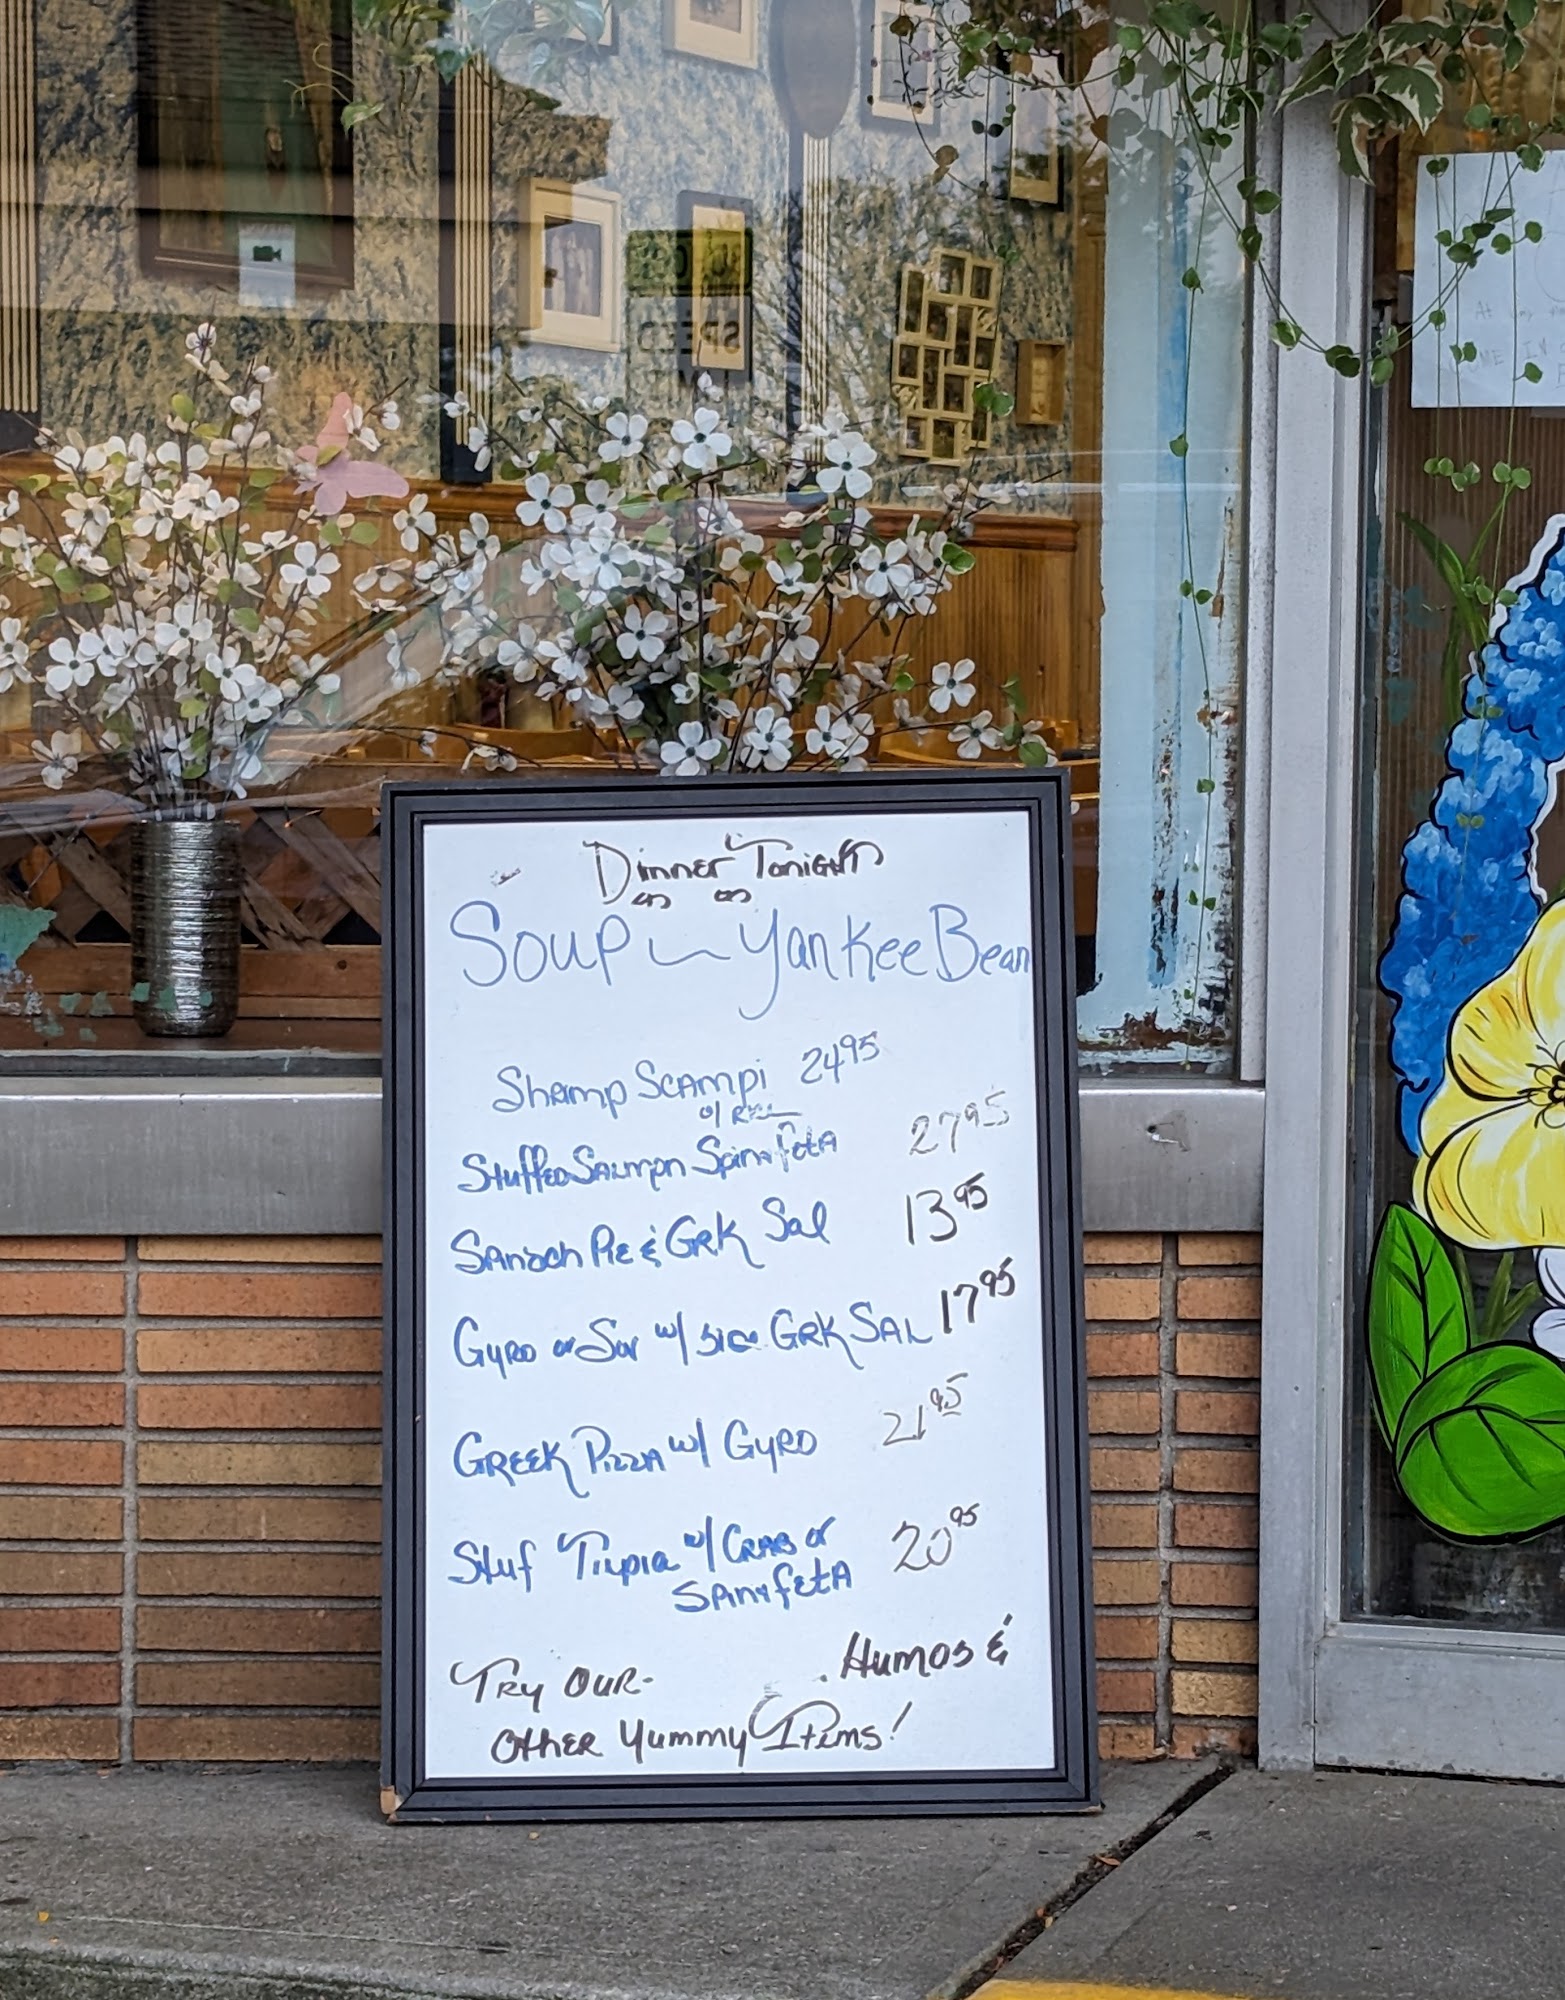 Dinner Tonight
Soup ~ Yankee Bean
Shrimp Scampi 24 95
w/ Rice
Stuffed Salmon Spin & feta 27 95
Spanach Pie & Grk Sal 13 95
Gyro or Sov w/ side Grk SAL 17 95
Greek Pizza w/ Gyro 21 95
Stuf Tilpia w/ Crab or 20 95
Spin & fetA
Try Our - Humos &
Other Yummy Items!
SPEED
At any
COME IN